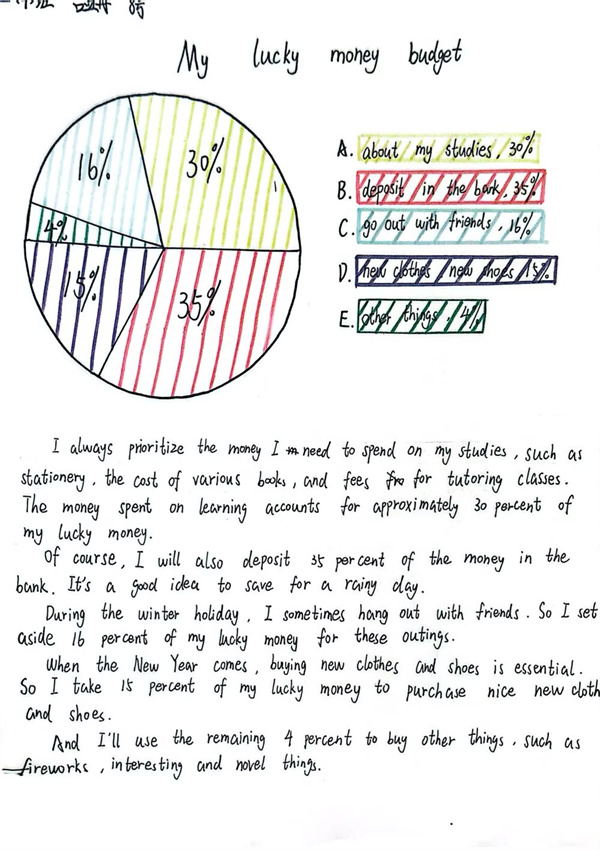 My lucky money budget
16%
30%
4%
15%
35%
A. about my studies, 30%
B. deposit in the bank, 35%
C. go out with friends, 16%
D. new clothes / new shoes 15%
E. other things, 4%
I always prioritize the money I need to spend on my studies, such as
stationery, the cost of various books, and fees for tutoring classes.
The money spent on learning accounts for approximately 30 percent of
my lucky money.
Of course, I will also deposit 35 percent of the money in the
bank. It's a good idea to save for a rainy day.
During the winter holiday, I sometimes hang out with friends. So I set
aside 16 percent of my lucky money for these outings.
When the New Year comes, buying new clothes and shoes is essential.
So I take 15 percent of my lucky money to purchase nice new cloth
and shoes.
And I'll use the remaining 4 percent to buy other things, such as
fireworks, interesting and novel things.